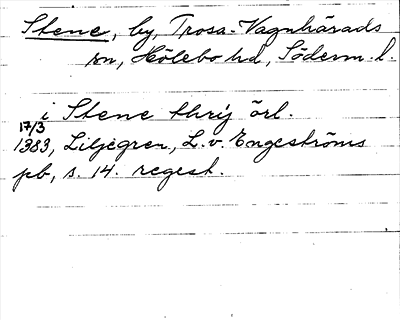 Stene, by, Trosa-Vagnhärads
sn, Hölebo hd, Söderm. l.
i Stene thrij örl.
17/3
1383, Liljegren, L. v. Engeströms
pb, s. 14. regest.